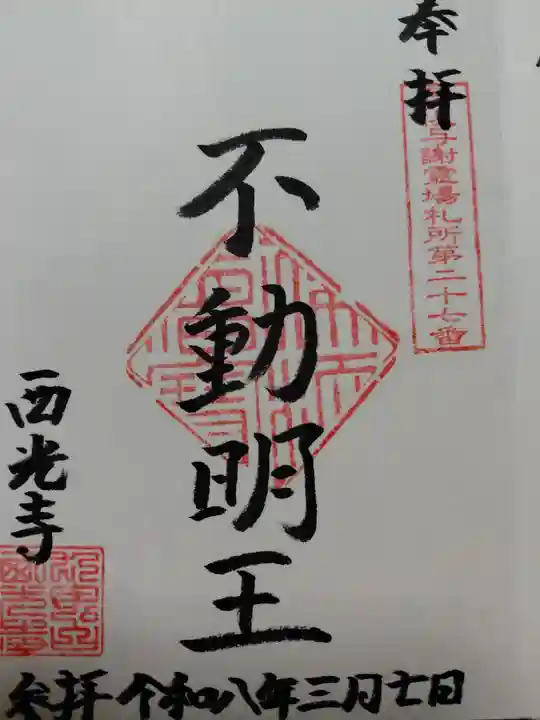 奉拝
与謝霊場札所第二十七番
不動明王
西光寺
参拝令和八年三月七日